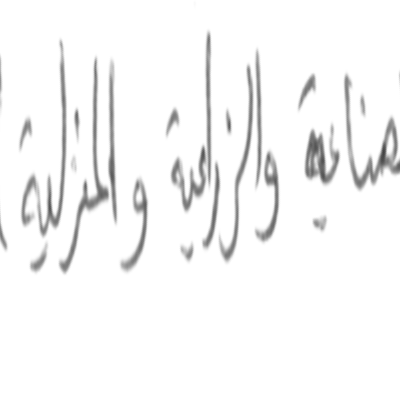 صناعية والزراعية و المنزلية